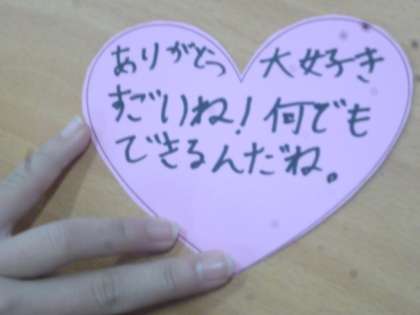 ありがとう 大好き
すごいね！何でも
できるんだね。